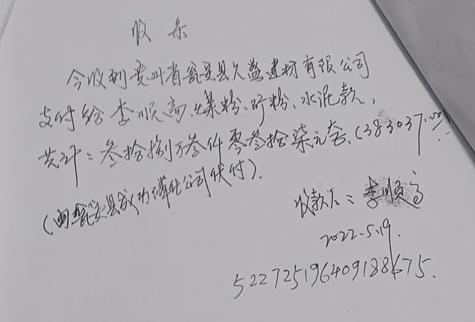 收条
今收到贵州省瓮安县久益建材有限公司
支付给李顺高煤粉、矿粉、水泥款,
共计:叁拾捌万叁仟零叁拾柒元整.(383037.00)
(由瓮安县成功煤化公司代付).
收款人:李顺高
2022.5.19.
522725196409188675.